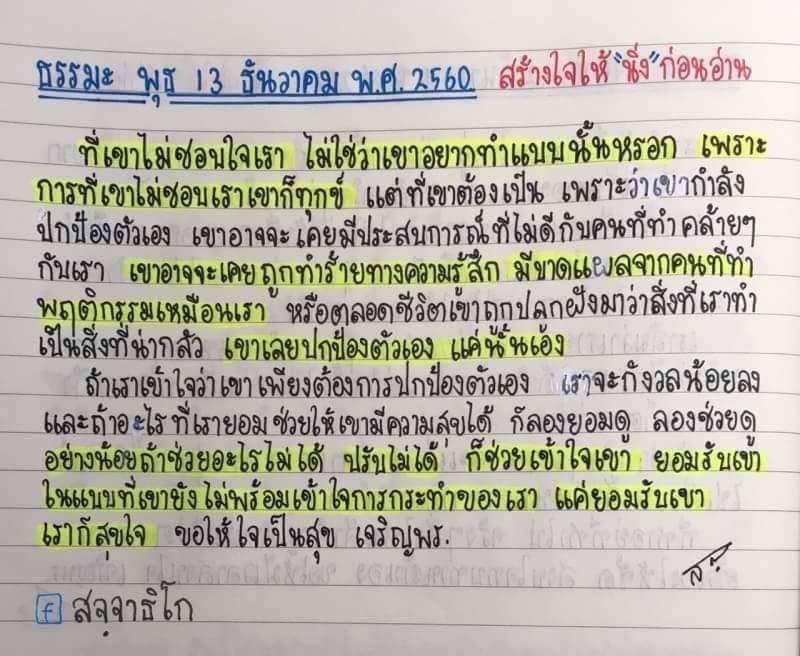 ธรรมะ พุธ 13 ธันวาคม พ.ศ. 2560. สร้างใจให้ "นิ่ง" ก่อนอ่าน
ที่เขาไม่ชอบใจเรา ไม่ใช่ว่าเขาอยากทำแบบนั้นหรอก เพราะ
การที่เขาไม่ชอบเราเขาก็ทุกข์ แต่ที่เขาต้องเป็น เพราะว่าเขากำลัง
ปกป้องตัวเอง เขาอาจจะเคยมีประสบการณ์ที่ไม่ดีกับคนที่ทำคล้ายๆ
กับเรา เขาอาจจะเคยถูกทำร้ายทางความรู้สึก มีบาดแผลจากคนที่ทำ
พฤติกรรมเหมือนเรา หรือตลอดชีวิตเขาถูกปลูกฝังมาว่าสิ่งที่เราทำ
เป็นสิ่งที่น่ากลัว เขาเลยปกป้องตัวเอง แค่นั้นเอง
ถ้าเราเข้าใจว่าเขาเพียงต้องการปกป้องตัวเอง เราจะกังวลน้อยลง
และถ้าอะไรที่เรายอมช่วยให้เขามีความสุขได้ ก็ลองยอมดู ลองช่วยดู
อย่างน้อยถ้าช่วยอะไรไม่ได้ ปรับไม่ได้ ก็ช่วยเข้าใจเขา ยอมรับเขา
ในแบบที่เขายังไม่พร้อมเข้าใจการกระทำของเรา แค่ยอมรับเขา
เราก็สุขใจ ขอให้ใจเป็นสุข เจริญพร.
f สจฺจาธิโก